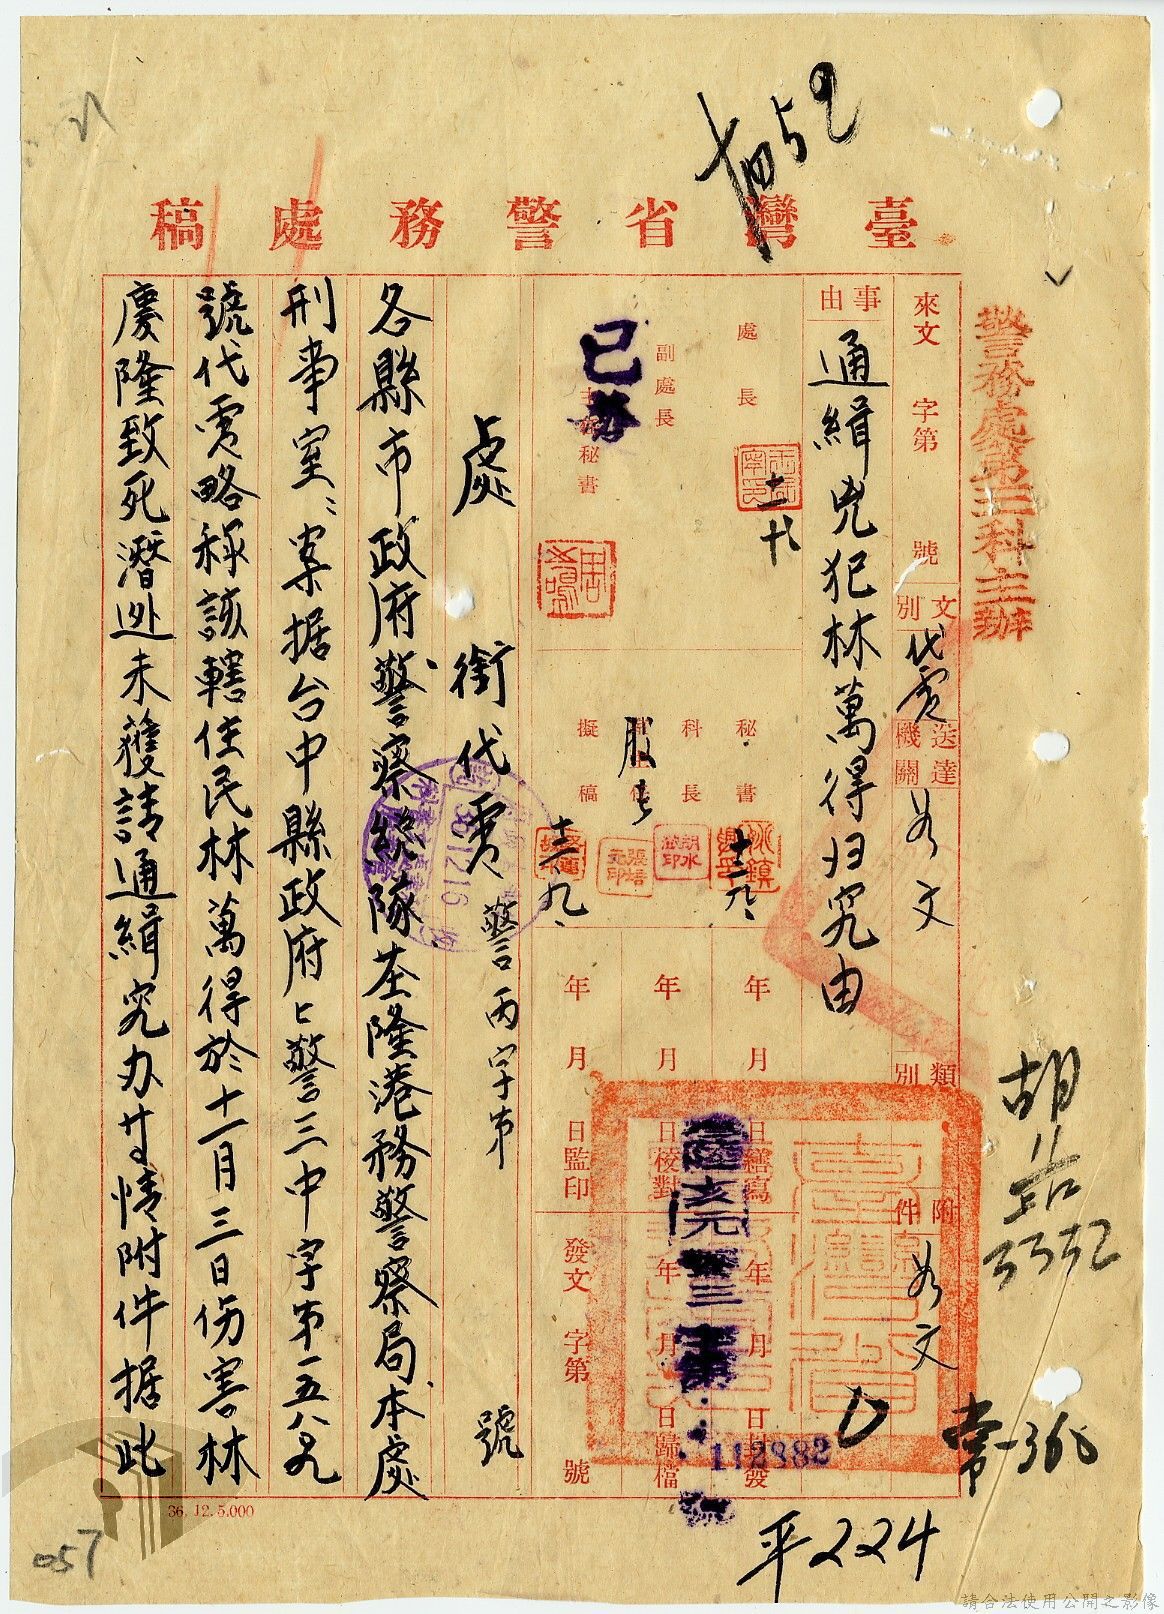 臺灣省警務處稿
警務處第三科主辦
來文 字第 號
文別 代電
送達機關 如文
類別
附件 如文
事由 通緝兇犯林萬得归究由
處長
副處長
主任秘書
十二 十
秘書
科長
股長
擬稿
十二、九、
十二、九、
年 月 日繕寫
年 月 日校對
年 月 日監印
年 月 日封發
年 月 日歸檔
發文 字第 號
112882
36.12.16
處銜代電 警丙字第 號
各縣市政府警察總隊基隆港務警察局本處
刑事室：案据台中縣政府警三中字第一五八九
號代電略称該轄住民林萬得於十一月三日伤害林
慶隆致死潛逃未獲請通緝究办等情附件据此
36. 12. 5.000
胡
常-368
平224
057
請合法使用公開之影像